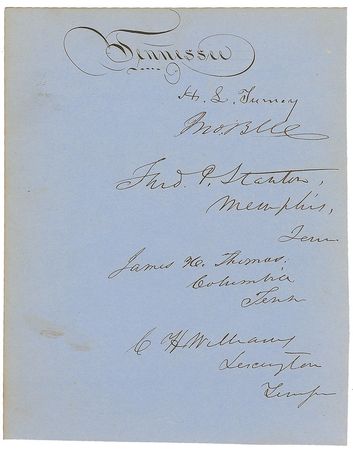 Tennessee
H. L. Turney
Jno. Bell
Fred. P. Stanton,
Memphis,
Tenn
James H. Thomas.
Columbia
Tenn
C H Williams
Lexington
Tenn